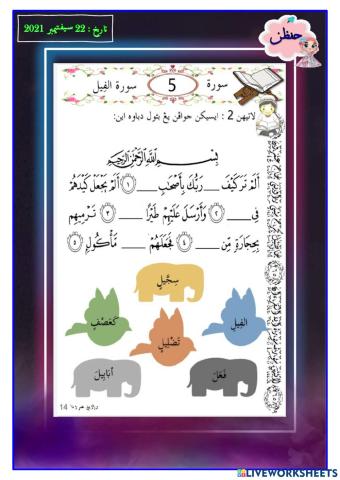 تاريخ : 22 سيڤتمبر 2021
حفظن
سورة 5 سورة الفيل
لاتيهن 2 : ايسيكن حواڤن يڠ بتول دباوه اين:
بِسْمِ اللَّهِ الرَّحْمَٰنِ الرَّحِيمِ
أَلَمْ تَرَ كَيْفَ ____ رَبُّكَ بِأَصْحَٰبِ ____ ١ أَلَمْ يَجْعَلْ كَيْدَهُمْ
فِي ____ ٢ وَأَرْسَلَ عَلَيْهِمْ طَيْرًا ____ ٣ تَرْمِيهِم
بِحِجَارَةٍ مِّن ____ ٤ فَجَعَلَهُمْ ____ مَّأْكُولٍۭ ٥
سِجِّيلٍ
كَعَصْفٍ
الفِيلِ
تَضْلِيلٍ
أَبَابِيلَ
فَعَلَ
14
LIVEWORKSHEETS